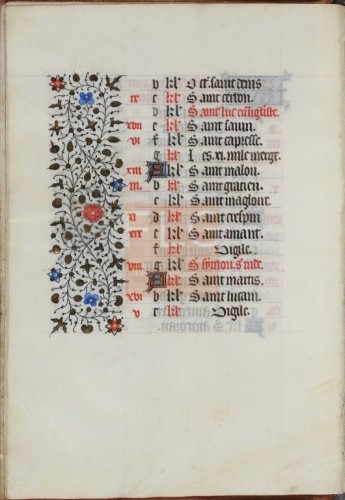 b kl' Oct. saint denis
ix c kl' Saint cerbon.
d kl' Saint luc euu̅gliste.
xvii e kl' Saint sauin.
vi f kl' Saint capresse.
g kl' Les .xi. mile vierge.
xiiii A kl' Saint malon.
iii b kl' Saint gracien.
c kl' Saint magloire.
xi d kl' Saint crespin
xix e kl' Saint amant.
f kl' Vigile.
viii g kl' S. symon. s. iude.
A kl' Saint
xvi b kl' Saint lucain.
v c kl' Vigile.